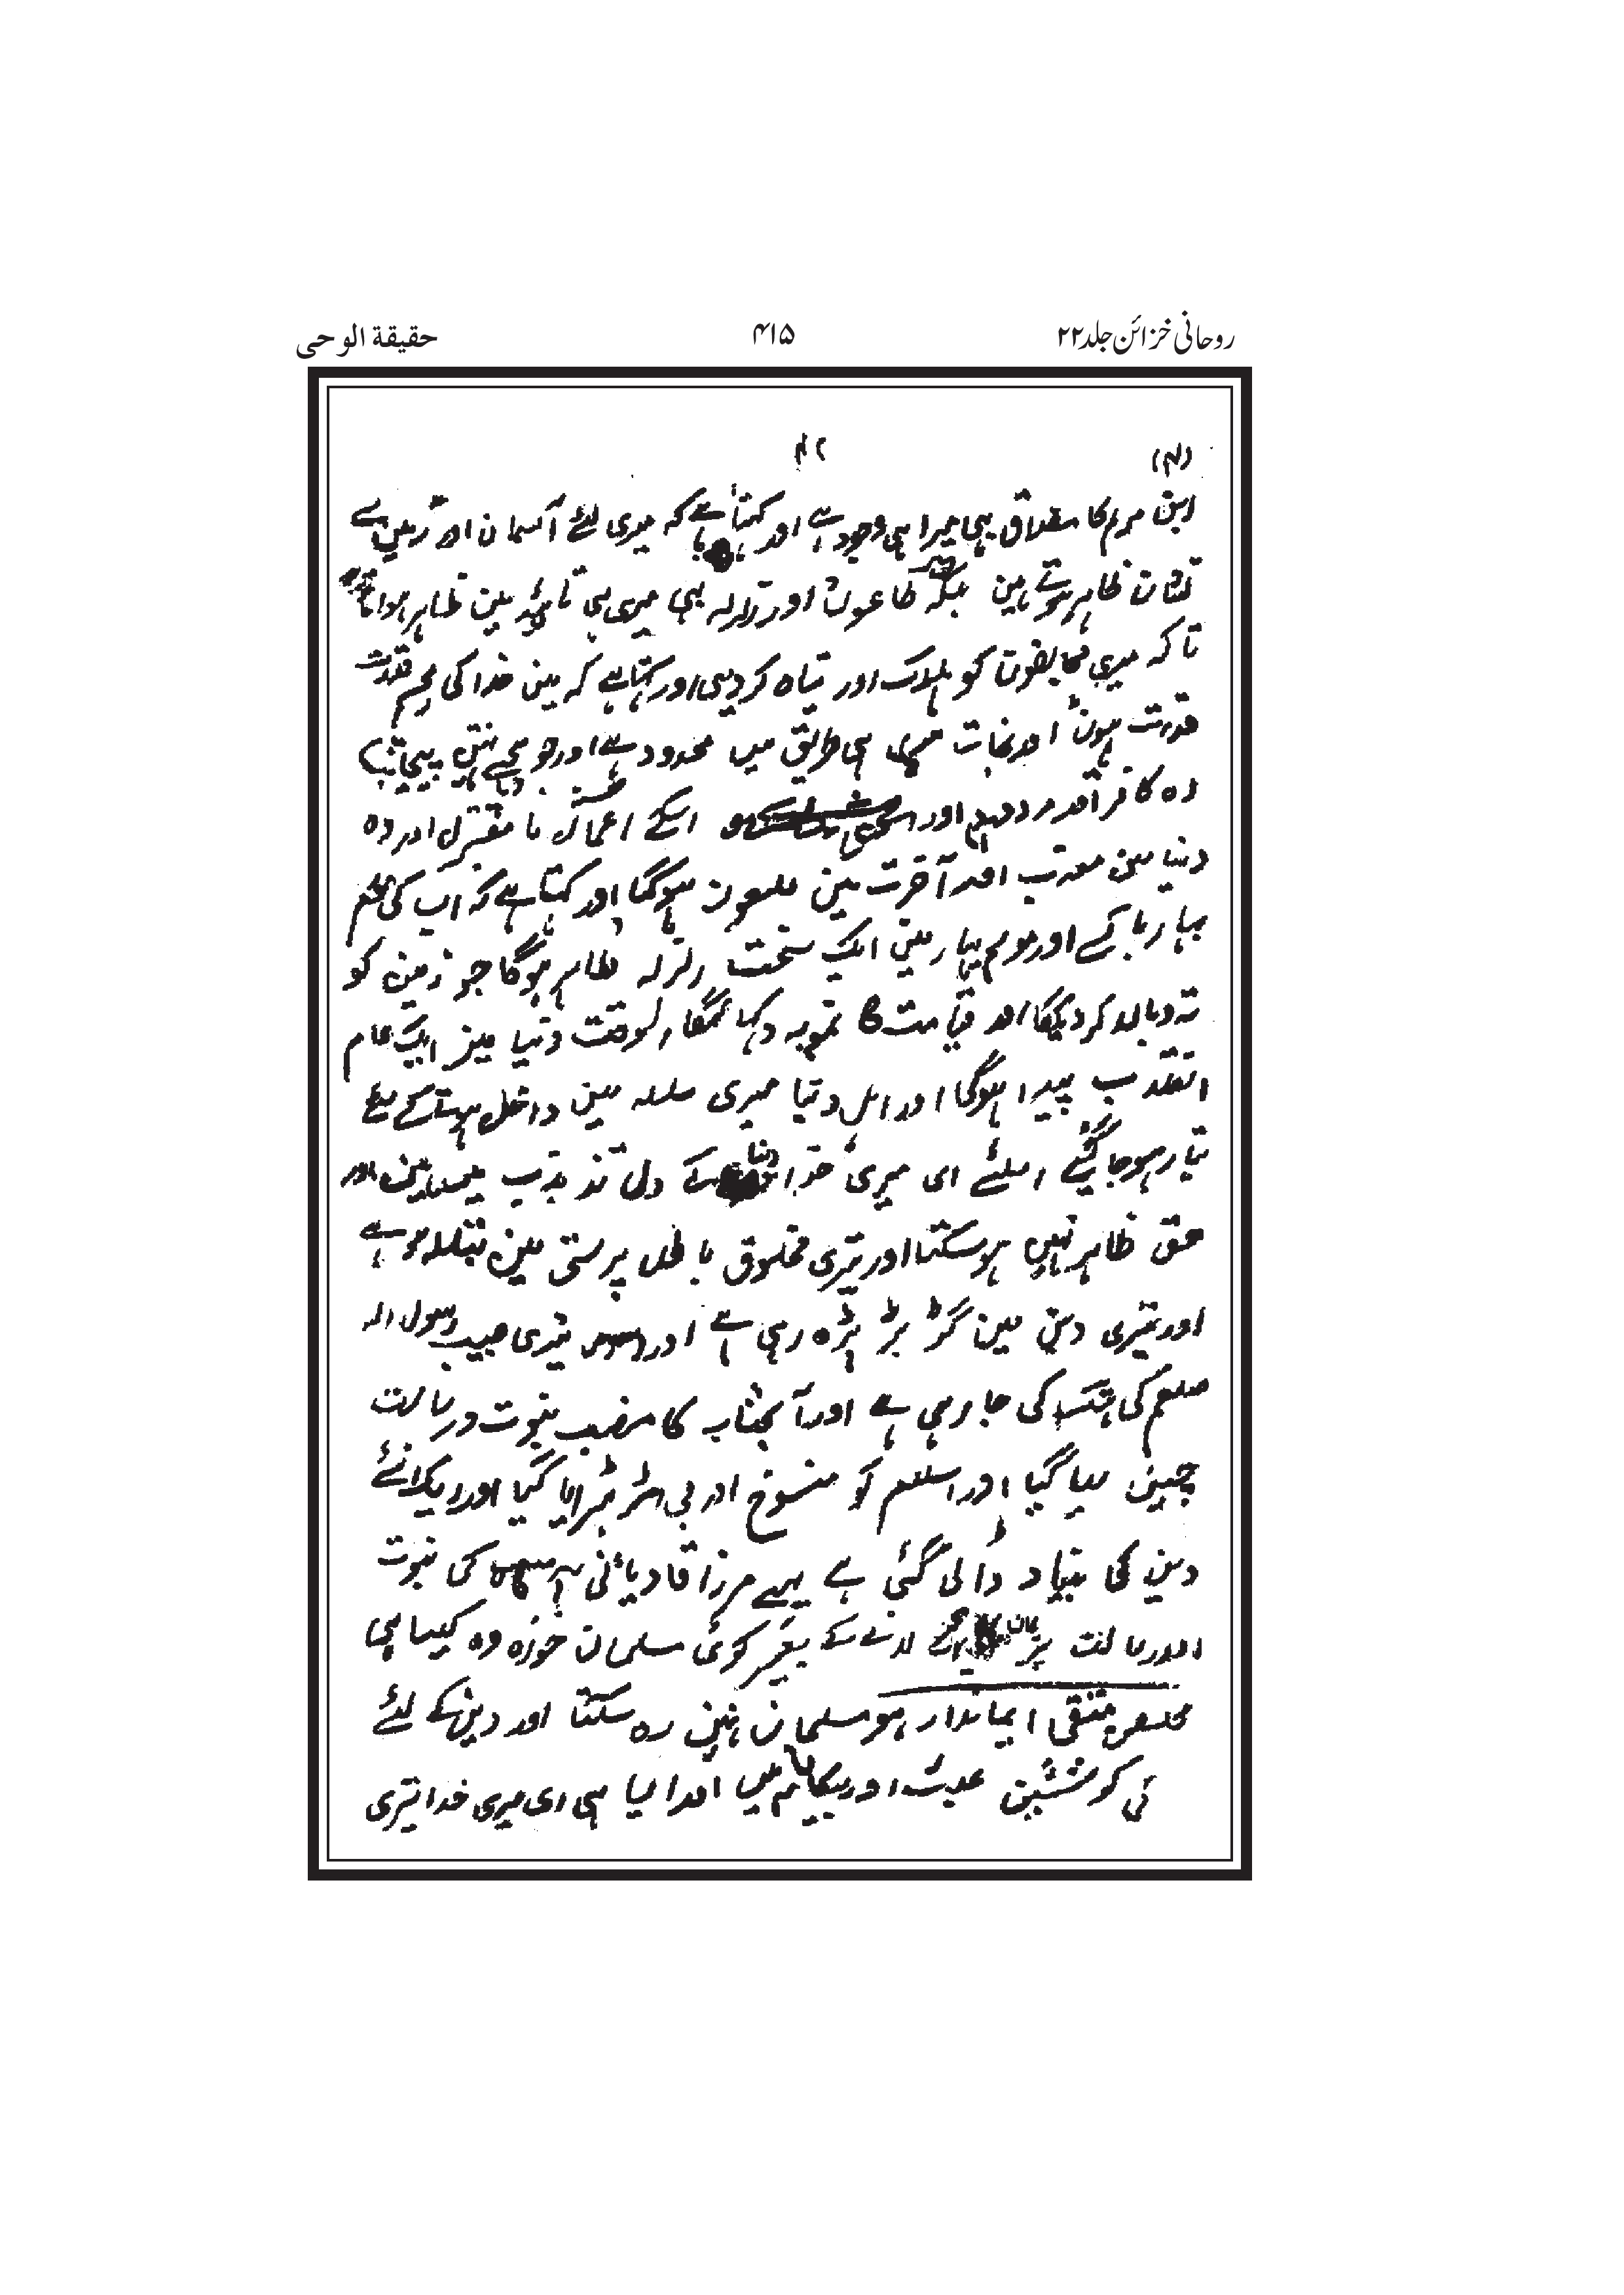 روحانی خزائن جلد۲۲
۴۱۵
حقیقۃ الوحی
(۴)
ابن مریم کا مصداق یہی میرا ہی وجود ہے اور کہتا ہے کہ میری لئے آسمان اور زمین سے
نشان ظاہر ہوتے ہین بلکہ طاعون اور زلزلہ بہی میری ہی تائید مین ظاہر ہوا
تا کہ میری مخالفون کو ہلاک اور تباہ کر دیی اور کہتا ہے کہ مین خدا کی مجسم قدرت
قدرت ہون اور نجات میری ہی طریق میں محدود ہے اور جو مجہے نہین پہچانتا
وہ کافر اور مردود اور اسکے اعمال نا مقبول اور وہ
دنیا مین معذب اور آخرت مین ملعون ہوگا اور کہتا ہے کہ اب کی
بہار یا کے اور موسم بہار مین ایک سخت زلزلہ ظاہر ہوگا جو زمین کو
تہ و بالا کر دیگا اور قیامت کا نمونہ دکہا اسوقت دنیا مین ایک عام
انقلاب پیدا ہوگا اور اہل دنیا میری سلسلہ مین داخل ہونے کے لئے
تیار ہو جائینگے اسلئے ای میری خدا دنیا کے دل تذبذب میں ہین اور
حق ظاہر نہیں ہو سکتا اور تیری مخلوق باطل پرستی مین مبتلا ہو ہے
اور تیری دین مین گڑ بڑ پڑہ رہی ہے اور تیری حبیب رسول اللہ
صلعم کی ہتک کی جا رہی ہے اور آنجناب کا منصب نبوت و رسالت
چہین لیا گیا اور اسلام کو منسوخ اور بی اثر ٹہرایا گیا اور ایک نئے
دین کی بنیاد ڈالی گئی ہے یہے مرزا قادیانی کی نبوت
اور رسالت پر ایمان لانے کے بغیر کوئی مسلمان خواہ وہ کیسا ہی
مخلص متقی ایماندار ہو مسلمان نہین رہ سکتا اور دین کے لئے
کوششین عبث اور بیکار ہیں اور ایسا ہی ای میری خدا تیری